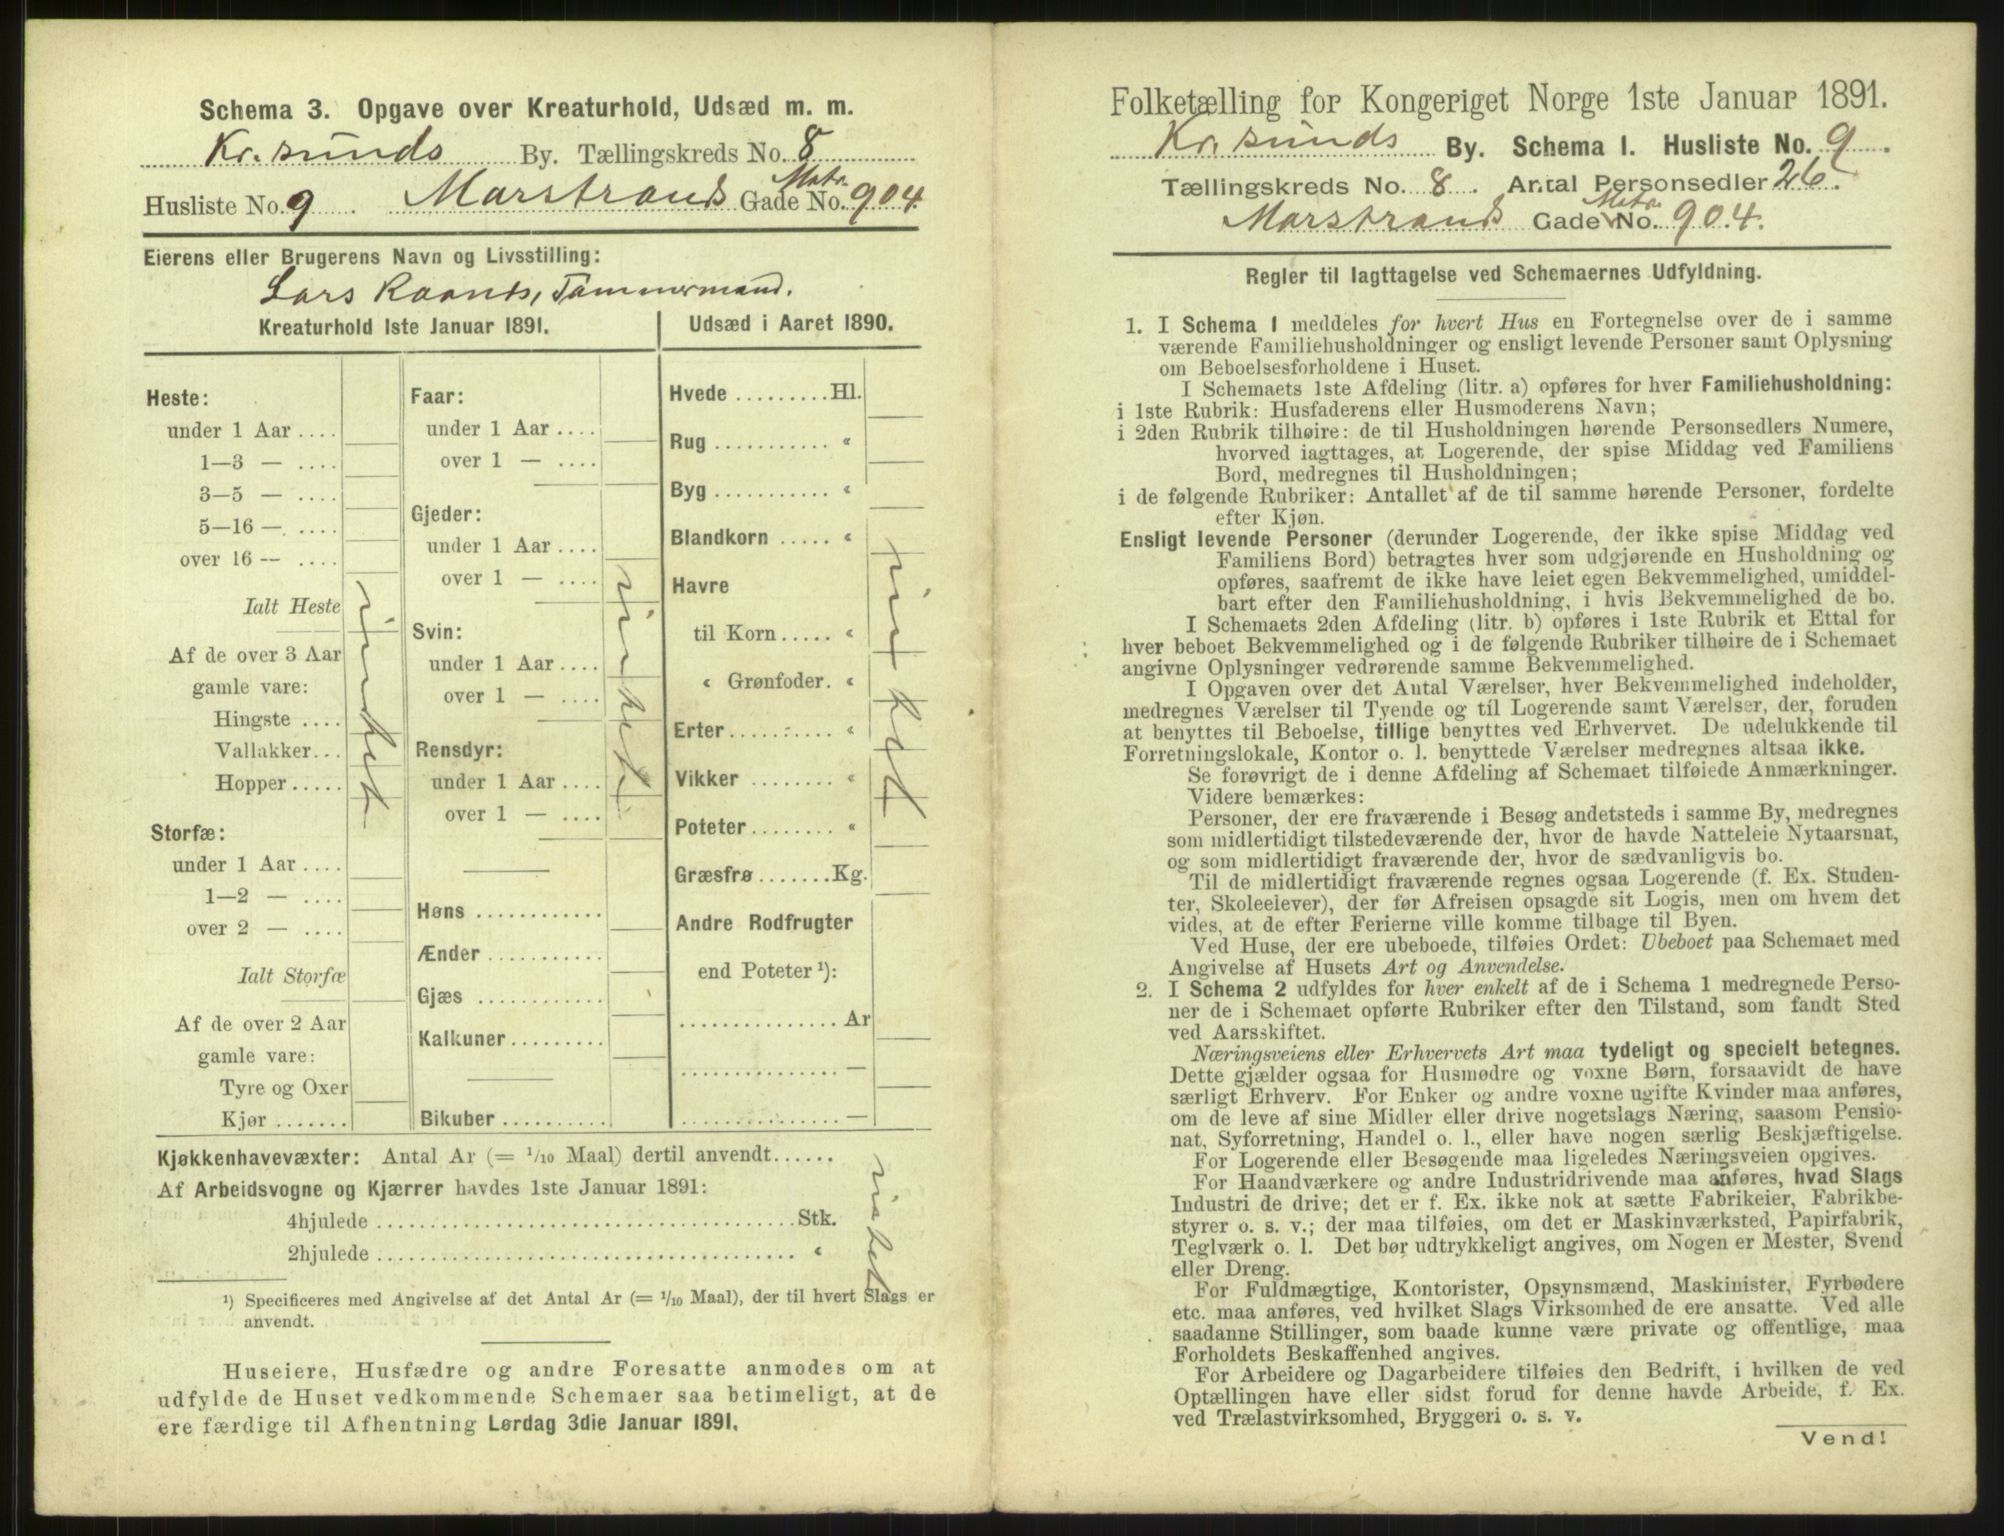 Schema 3. Opgave over Kreaturhold, Udsæd m. m.
Kr.sunds By. Tællingskreds No. 8
Husliste No. 9 Marstrands Gade Matr. No. 904.
Eierens eller Brugerens Navn og Livsstilling:
Lars Raanes, Tømmermand.
Kreaturhold 1ste Januar 1891.
Heste:
under 1 Aar ....
1—3 — ....
3—5 — ....
5—16 — ....
over 16 — ....
Ialt Heste
Af de over 3 Aar
gamle vare:
Hingste ....
Vallakker...
Hopper.....
intet
Storfæ:
under 1 Aar ....
1—2 — ....
over 2 — ....
Ialt Storfæ
Af de over 2 Aar
gamle vare:
Tyre og Oxer
Kjør .......
Faar:
under 1 Aar ....
over 1 — ....
Gjeder:
under 1 Aar ....
over 1 — ....
Svin:
under 1 Aar ....
over 1 — ....
Rensdyr:
under 1 Aar ....
over 1 — ....
intet
Høns ............
Ænder ...........
Gjæs ............
Kalkuner.........
Bikuber ..........
Udsæd i Aaret 1890.
Hvede .........Hl.
Rug ........... “
Byg ........... “
Blandkorn ..... “
Havre
til Korn ..... “
“ Grønfoder. “
Erter.......... “
Vikker ........ “
Poteter........ “
Græsfrø .......Kg.
Andre Rodfrugter
end Poteter ¹):
............... Ar
............... —
............... —
intet
Kjøkkenhavevæxter: Antal Ar (= 1/10 Maal) dertil anvendt......
Af Arbeidsvogne og Kjærrer havdes 1ste Januar 1891:
4hjulede ......................................Stk.
2hjulede ...................................... “
intet
¹) Specificeres med Angivelse af det Antal Ar (= 1/10 Maal), der til hvert Slags er
anvendt.
Huseiere, Husfædre og andre Foresatte anmodes om at
udfylde de Huset vedkommende Schemaer saa betimeligt, at de
ere færdige til Afhentning Lørdag 3die Januar 1891.
Folketælling for Kongeriget Norge 1ste Januar 1891.
Kr.sunds By. Schema I. Husliste No. 9.
Tællingskreds No. 8. Antal Personsedler 26.
Marstrands Gade Matr. No. 904.
Regler til Iagttagelse ved Schemaernes Udfyldning.
1. I Schema 1 meddeles for hvert Hus en Fortegnelse over de i samme
værende Familiehusholdninger og ensligt levende Personer samt Oplysning
om Beboelsesforholdene i Huset.
I Schemaets 1ste Afdeling (litr. a) opføres for hver Familiehusholdning:
i 1ste Rubrik: Husfaderens eller Husmoderens Navn;
i 2den Rubrik tilhøire: de til Husholdningen hørende Personsedlers Numere,
hvorved iagttages, at Logerende, der spise Middag ved Familiens
Bord, medregnes til Husholdningen;
i de følgende Rubriker: Antallet af de til samme hørende Personer, fordelte
efter Kjøn.
Ensligt levende Personer (derunder Logerende, der ikke spise Middag ved
Familiens Bord) betragtes hver som udgjørende en Husholdning og
opføres, saafremt de ikke have leiet egen Bekvemmelighed, umiddel-
bart efter den Familiehusholdning, i hvis Bekvemmelighed de bo.
I Schemaets 2den Afdeling (litr. b) opføres i 1ste Rubrik et Ettal for
hver beboet Bekvemmelighed og i de følgende Rubriker tilhøire de i Schemaet
angivne Oplysninger vedrørende samme Bekvemmelighed.
I Opgaven over det Antal Værelser, hver Bekvemmelighed indeholder,
medregnes Værelser til Tyende og til Logerende samt Værelser, der, foruden
at benyttes til Beboelse, tillige benyttes ved Erhvervet. De udelukkende til
Forretningslokale, Kontor o. l. benyttede Værelser medregnes altsaa ikke.
Se forøvrigt de i denne Afdeling af Schemaet tilføiede Anmærkninger.
Videre bemærkes:
Personer, der ere fraværende i Besøg andetsteds i samme By, medregnes
som midlertidigt tilstedeværende der, hvor de havde Natteleie Nytaarsnat,
og som midlertidigt fraværende der, hvor de sædvanligvis bo.
Til de midlertidigt fraværende regnes ogsaa Logerende (f. Ex. Studen-
ter, Skoleelever), der før Afreisen opsagde sit Logis, men om hvem det
vides, at de efter Ferierne ville komme tilbage til Byen.
Ved Huse, der ere ubeboede, tilføies Ordet: Ubeboet paa Schemaet med
Angivelse af Husets Art og Anvendelse.
2. I Schema 2 udfyldes for hver enkelt af de i Schema 1 medregnede Perso-
ner de i Schemaet opførte Rubriker efter den Tilstand, som fandt Sted
ved Aarsskiftet.
Næringsveiens eller Erhvervets Art maa tydeligt og specielt betegnes.
Dette gjælder ogsaa for Husmødre og voxne Børn, forsaavidt de have
særligt Erhverv. For Enker og andre voxne ugifte Kvinder maa anføres,
om de leve af sine Midler eller drive nogetslags Næring, saasom Pensio-
nat, Syforretning, Handel o. l., eller have nogen særlig Beskjæftigelse.
For Logerende eller Besøgende maa ligeledes Næringsveien opgives.
For Haandværkere og andre Industridrivende maa anføres, hvad Slags
Industri de drive; det er f. Ex. ikke nok at sætte Fabrikeier, Fabrikbe-
styrer o. s. v.; der maa tilføies, om det er Maskinværksted, Papirfabrik,
Teglværk o. l. Det bør udtrykkeligt angives, om Nogen er Mester, Svend
eller Dreng.
For Fuldmægtige, Kontorister, Opsynsmænd, Maskinister, Fyrbødere
etc. maa anføres, ved hvilket Slags Virksomhed de ere ansatte. Ved alle
saadanne Stillinger, som baade kunne være private og offentlige, maa
Forholdets Beskaffenhed angives.
For Arbeidere og Dagarbeidere tilføies den Bedrift, i hvilken de ved
Optællingen have eller sidst forud for denne havde Arbeide, f. Ex.
ved Trælastvirksomhed, Bryggeri o. s. v.
Vend!